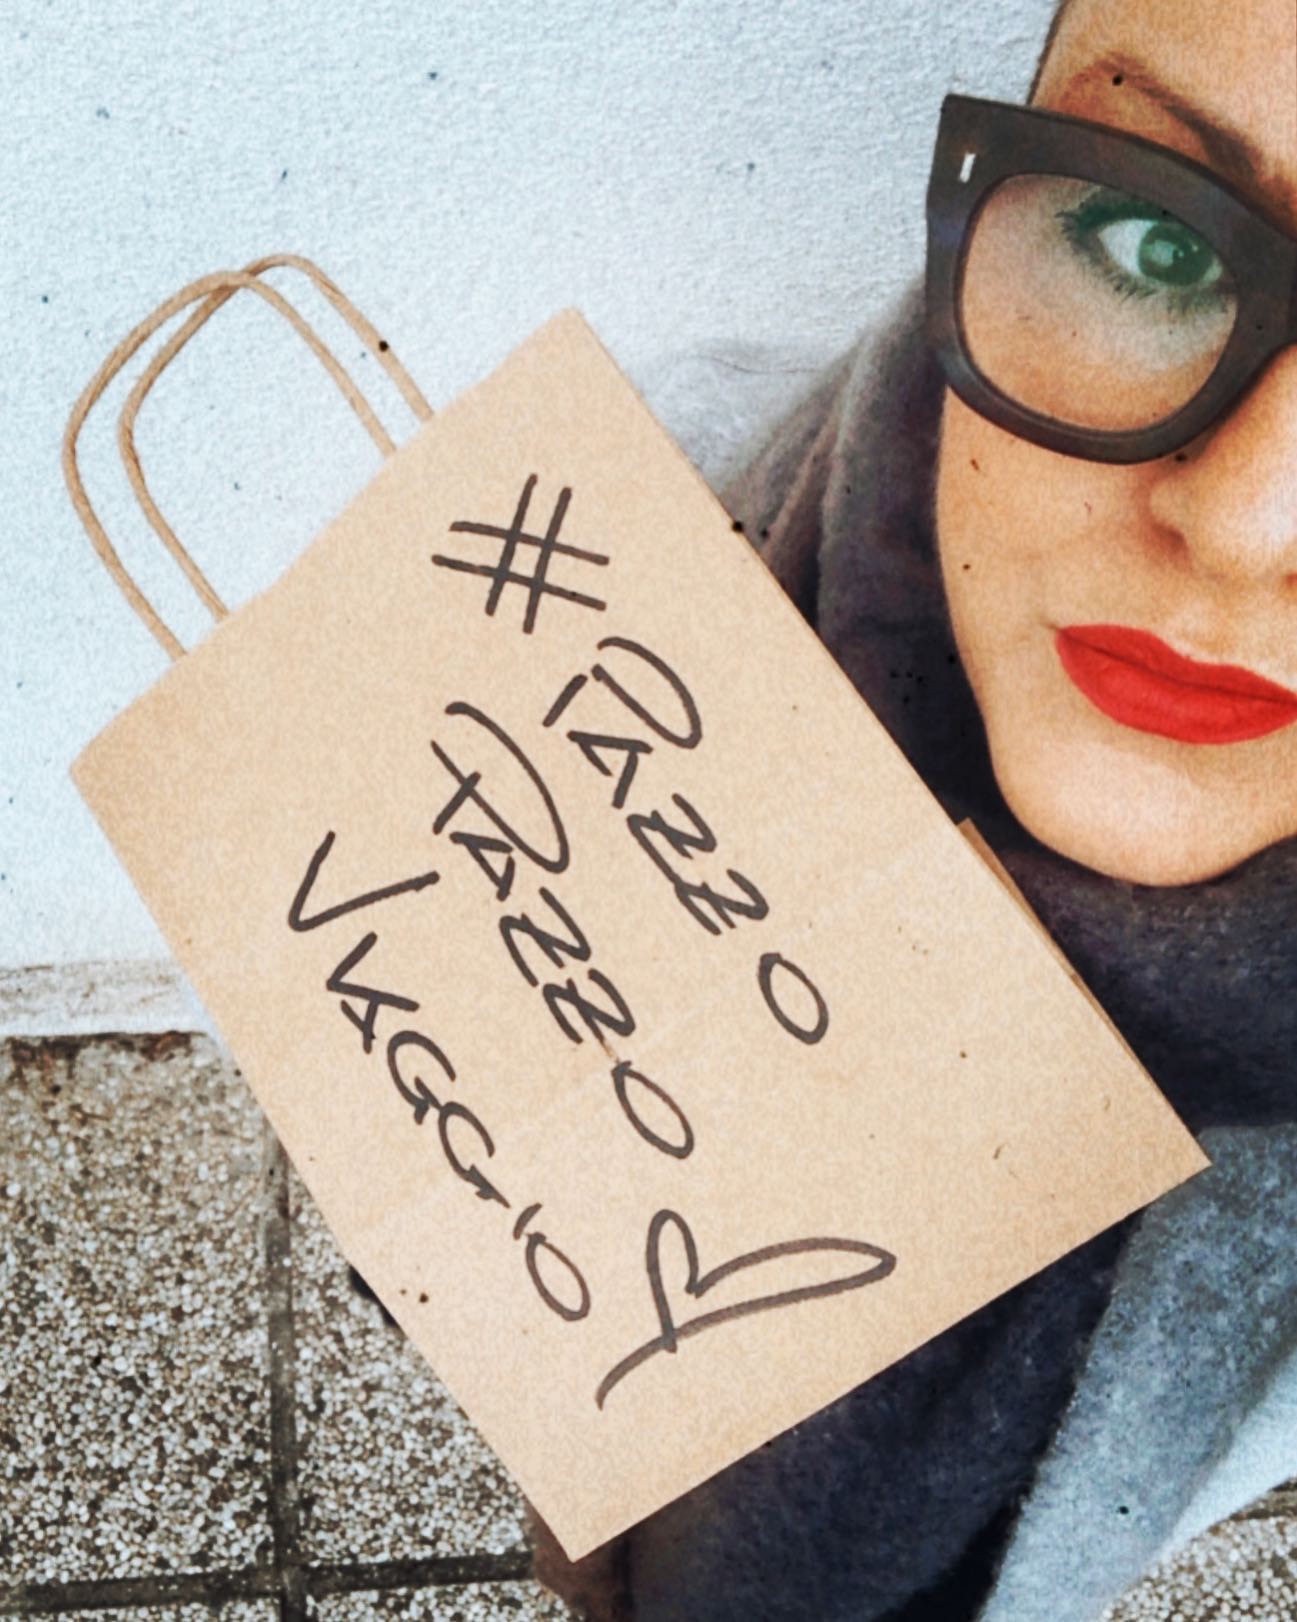 #PAZZO
PAZZO
VIAGGIO